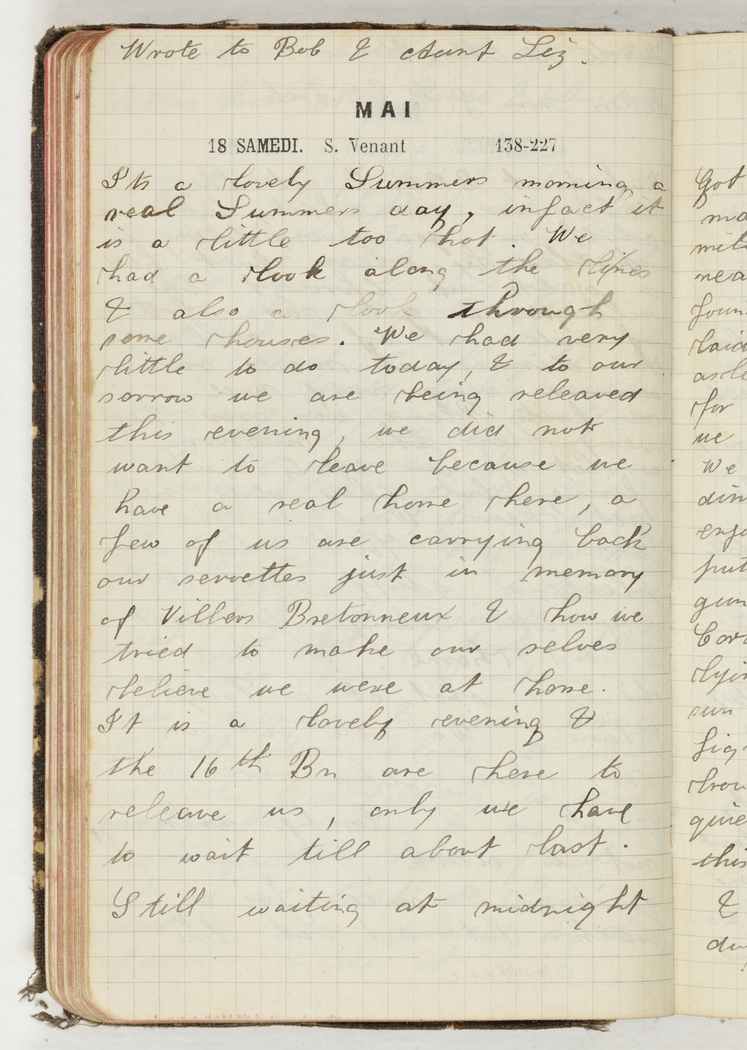 Wrote to Bob & Aunt Liz.
MAI
18 SAMEDI. S. Venant 138-227
Its a lovely Summers morning, a
real Summers day, infact it
is a little too hot. We
had a look along the lines
& also a look through
some houses. We had very
little to do today, & to our
sorrow we are being releaved
this evening, we did not
want to leave because we
have a real home here, a
few of us are carrying back
our servettes just in memory
of Villers Bretonneux & how we
tried to make our selves
believe we were at home.
It is a lovely evening &
the 16th Bn are here to
releave us, only we have
to wait till about last.
Still waiting at midnight
Got
for
we
We
put
sun
this
&